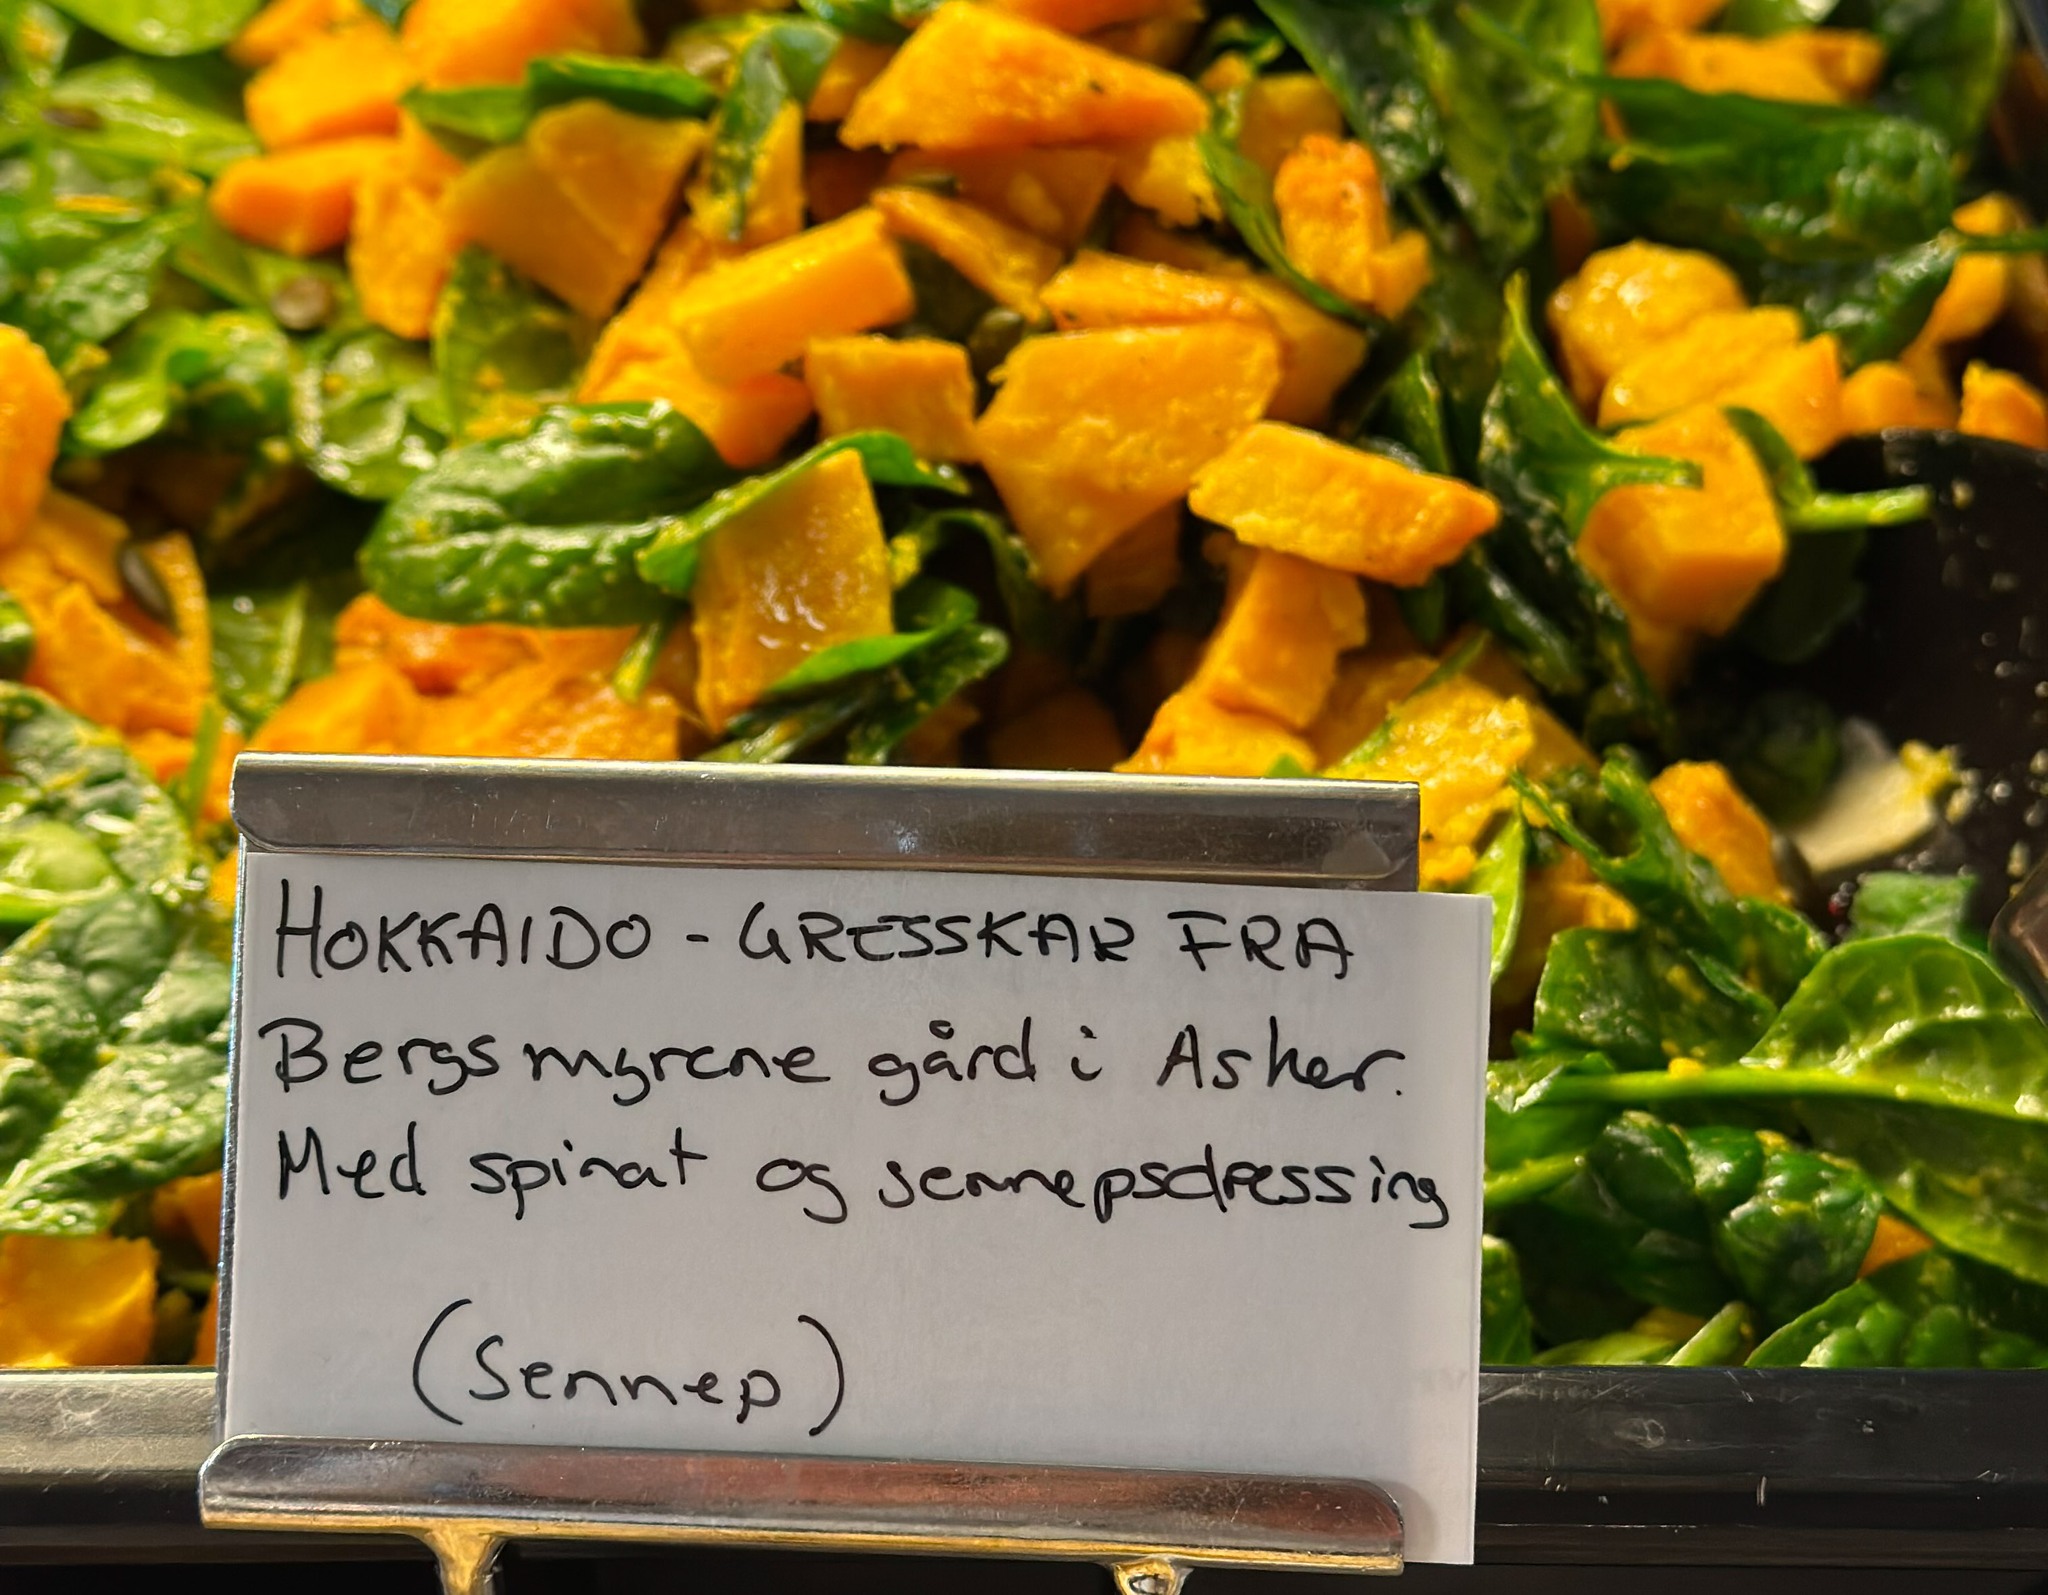 HOKKAIDO - GRESSKAR FRA
Bergsmyrene gård i Asker.
Med spinat og sennepsdressing
(Sennep)